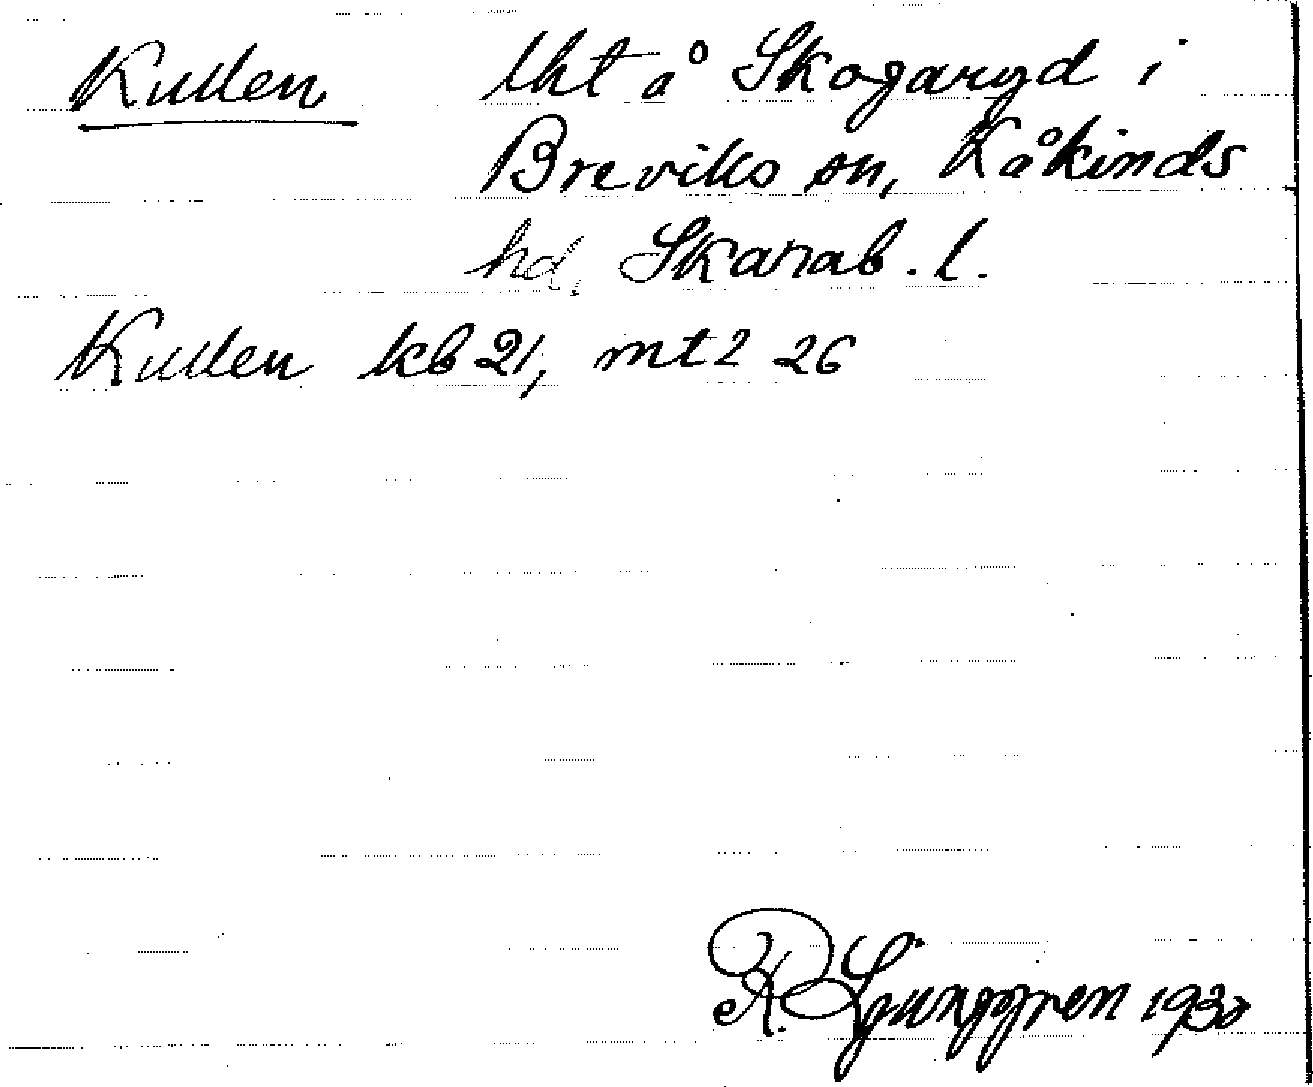 Kullen lht å Skogaryd i
Breviks sn, Kåkinds
hd, Skarab. l.
Kullen kb 21, mt2 26
R. Ljunggren 1930